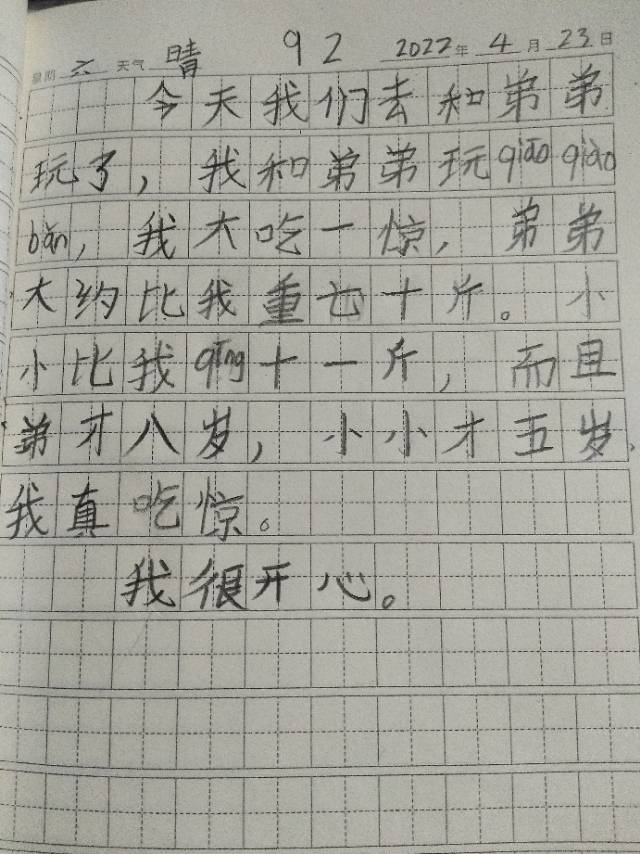 星期 六 天气 晴 92 2022年 4月 23日
今天我们去和弟弟
玩了，我和弟弟玩qiāo qiāo
bǎn，我大吃一惊，弟弟
大约比我重七十斤。小
小比我qīng十一斤，而且
弟才八岁，小小才五岁，
我真吃惊。
我很开心。